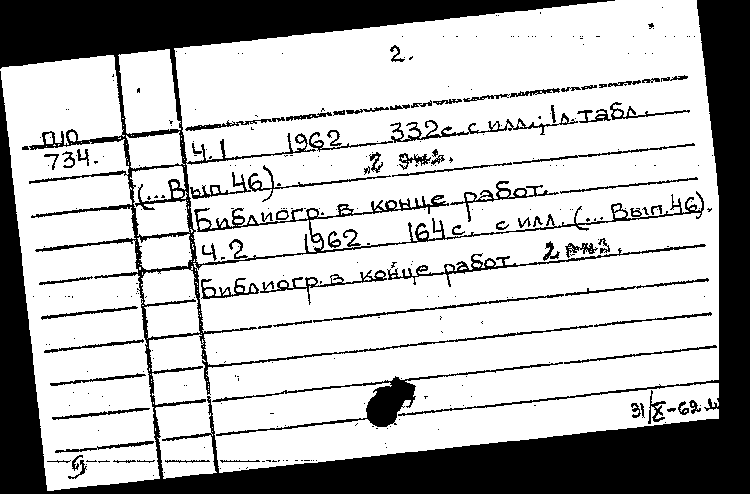 2.
П10
734.
Ч.1 1962 332с. с илл.; 1л. табл.
(...Вып.46). 2 экз.
Библиогр. в конце работ.
Ч.2. 1962. 164с. с илл. (...Вып.46).
Библиогр. в конце работ. 2 экз.
31/X-62